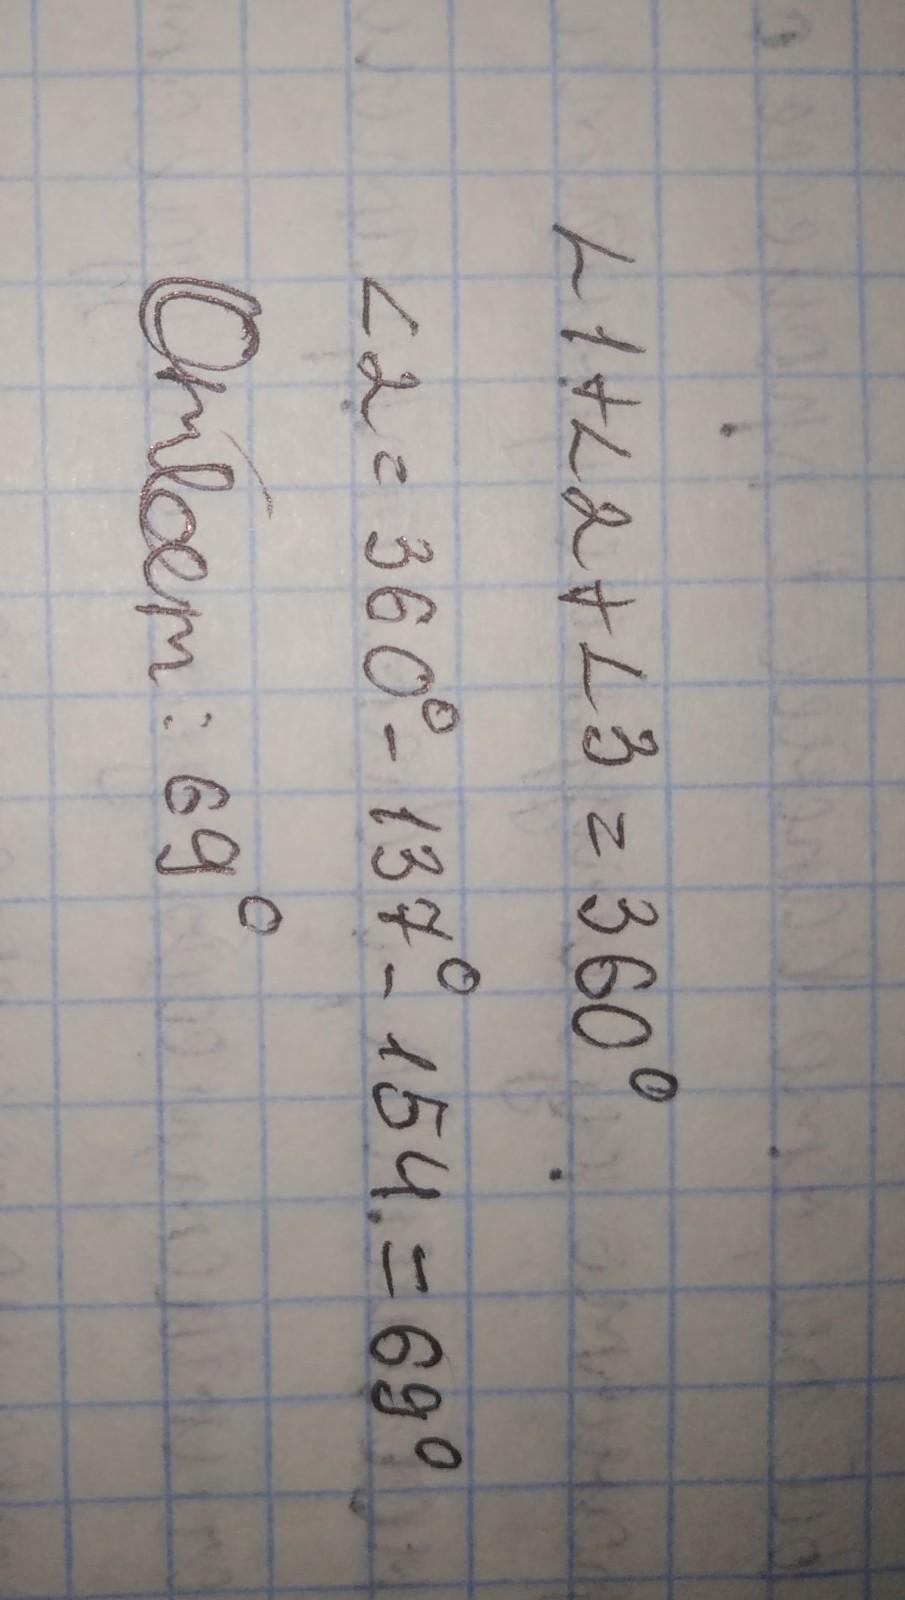 ∠1+∠2+∠3=360⁰
∠2=360⁰-137⁰-154.=69⁰
Ответ: 69⁰